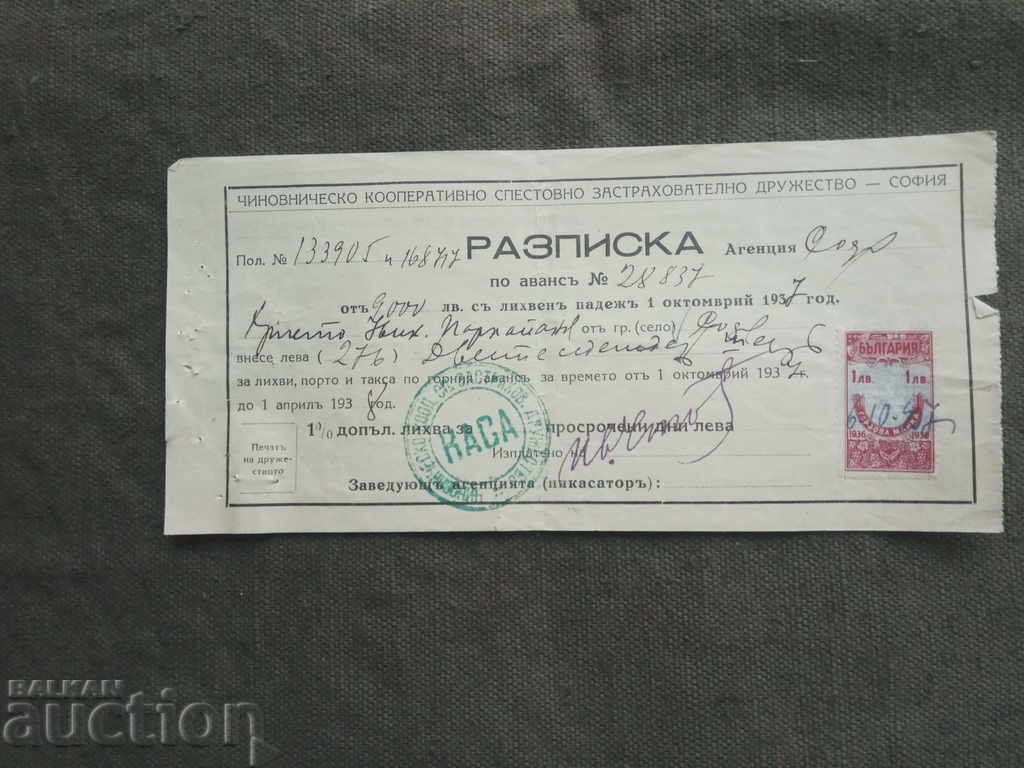 ЧИНОВНИЧЕСКО КООПЕРАТИВНО СПЕСТОВНО ЗАСТРАХОВАТЕЛНО ДРУЖЕСТВО — СОФИЯ
Пол. № 133905 и 168717 РАЗПИСКА Агенция
по авансъ № 28837
отъ 9000 лв. съ лихвенъ падежъ 1 октомврий 1937 год.
отъ гр. (село)
внесе лева (276) Двести
за лихви, порто и такса по горния авансъ за времето отъ 1 октомврий 1937 г.
до 1 априлъ 1938 год.
1% допъл. лихва за просрочени дни лева
Изплатено на
Печатъ
на друже-
ството
Заведующъ агенцията (инкасаторъ):
КАСА
БЪЛГАРИЯ
1 лв. 1 лв.
6-10-937
ГЕРБОВА МАРКА
1936 1936
BALKAN
auction